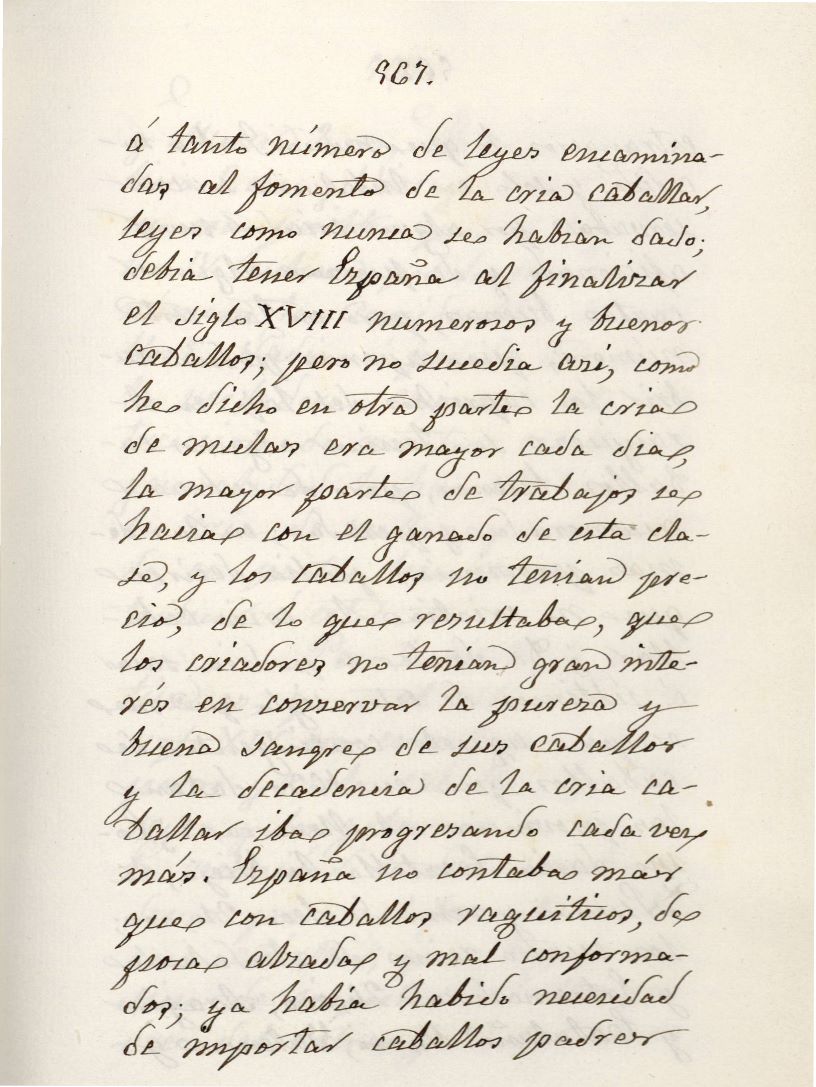 567.
á tanto número de leyes encamina-
das al fomento de la cria caballar,
leyes como nunca se habian dado;
debia tener España al finalizar
el siglo XVIII numerosos y buenos
caballos; pero no sucedia así, como
he dicho en otra parte la cria
de mulas era mayor cada dia,
la mayor parte de trabajos se
hacia con el ganado de esta cla-
se, y los caballos no tenian pre-
cio, de lo que resultaba, que
los criadores no tenian gran inte-
rés en conservar la pureza y
buena sangre de sus caballos
y la decadencia de la cria ca-
ballar iba progresando cada vez
más. España no contaba más
que con caballos raquiticos, de
poca alzada y mal conforma-
dos; ya habia habido necesidad
de importar caballos padres